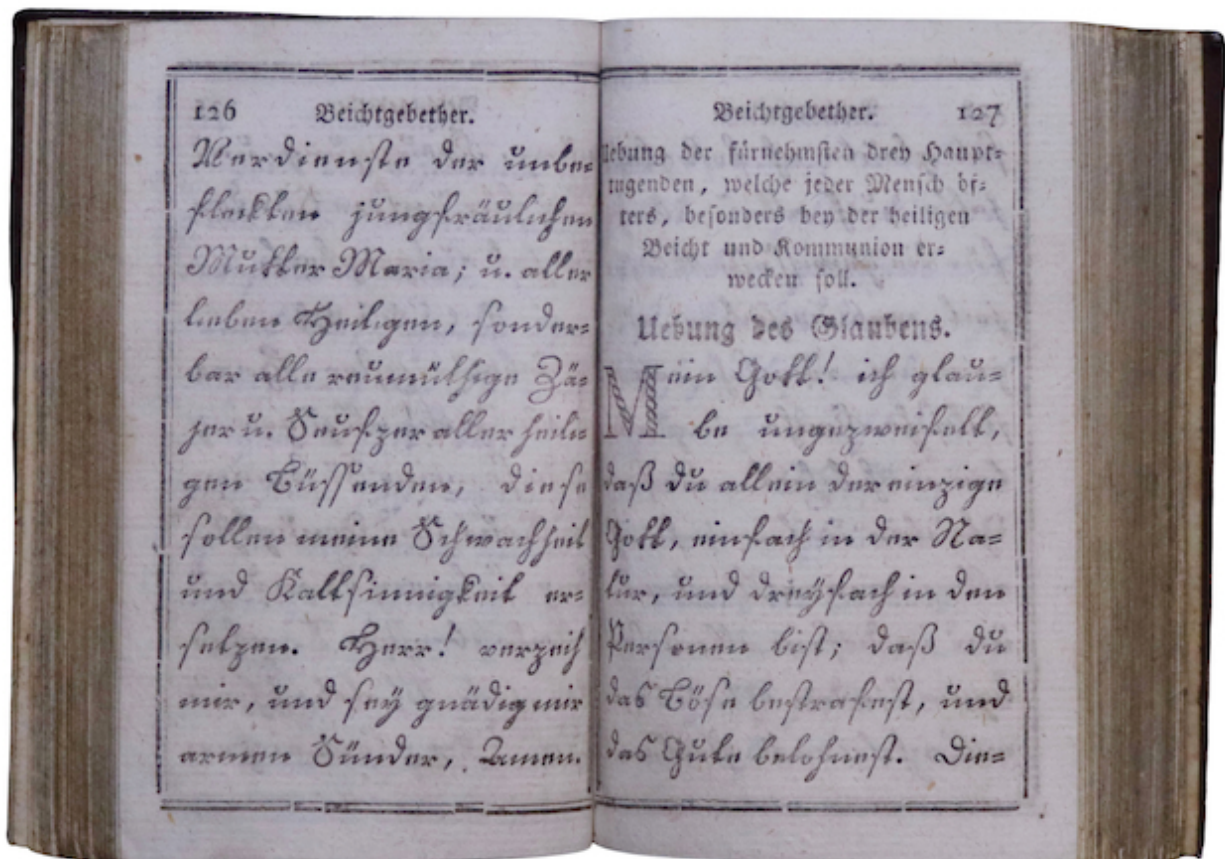 126 Beichtgebether.
Verdienste der unbe=
fleckten jungfräulichen
Mutter Maria; u. aller
lieben Heiligen, sonder=
bar alle reumüthige Zä=
her u. Seufzer aller heili=
gen Büssenden, diese
sollen meine Schwachheit
und Kaltsinnigkeit er=
setzen. Herr! verzeih
mir, und sey gnädig mir
armen Sünder, Amen.
Beichtgebether. 127
Uebung der fürnehmsten drey Haupt=
tugenden, welche jeder Mensch öf=
ters, besonders bey der heiligen
Beicht und Kommunion er=
wecken soll.
Uebung des Glaubens.
Mein Gott! ich glau=
be ungezweifelt,
daß du allein der einzige
Gott, einfach in der Na=
tur, und dreyfach in den
Personen bist; daß du
das Böse bestrafest, und
das Gute belohnest. Die=